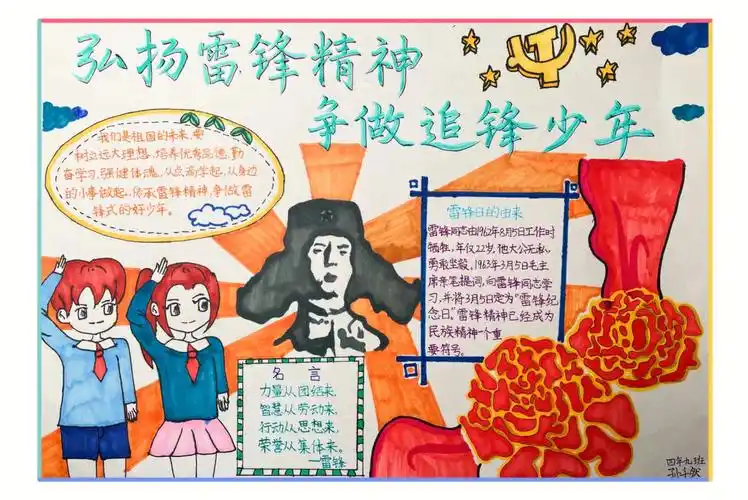 弘扬雷锋精神
争做追锋少年
我们是祖国的未来,要
树立远大理想,培养优秀品德,勤
奋学习,强健体魄。从点滴学起,从身边
的小事做起。传承雷锋精神,争做雷
锋式的好少年。
雷锋日的由来
雷锋同志由1962年8月5日工作时
牺牲,年仅22岁。他大公无私,
勇敢坚毅。1963年3月5日毛主
席亲笔提词,向雷锋同志学
习,并将3月5日定为“雷锋纪
念日。”雷锋精神已经成为
民族精神一个重
要符号。
名言
力量从团结来,
智慧从劳动来,
行动从思想来,
荣誉从集体来。
—雷锋
四年九班